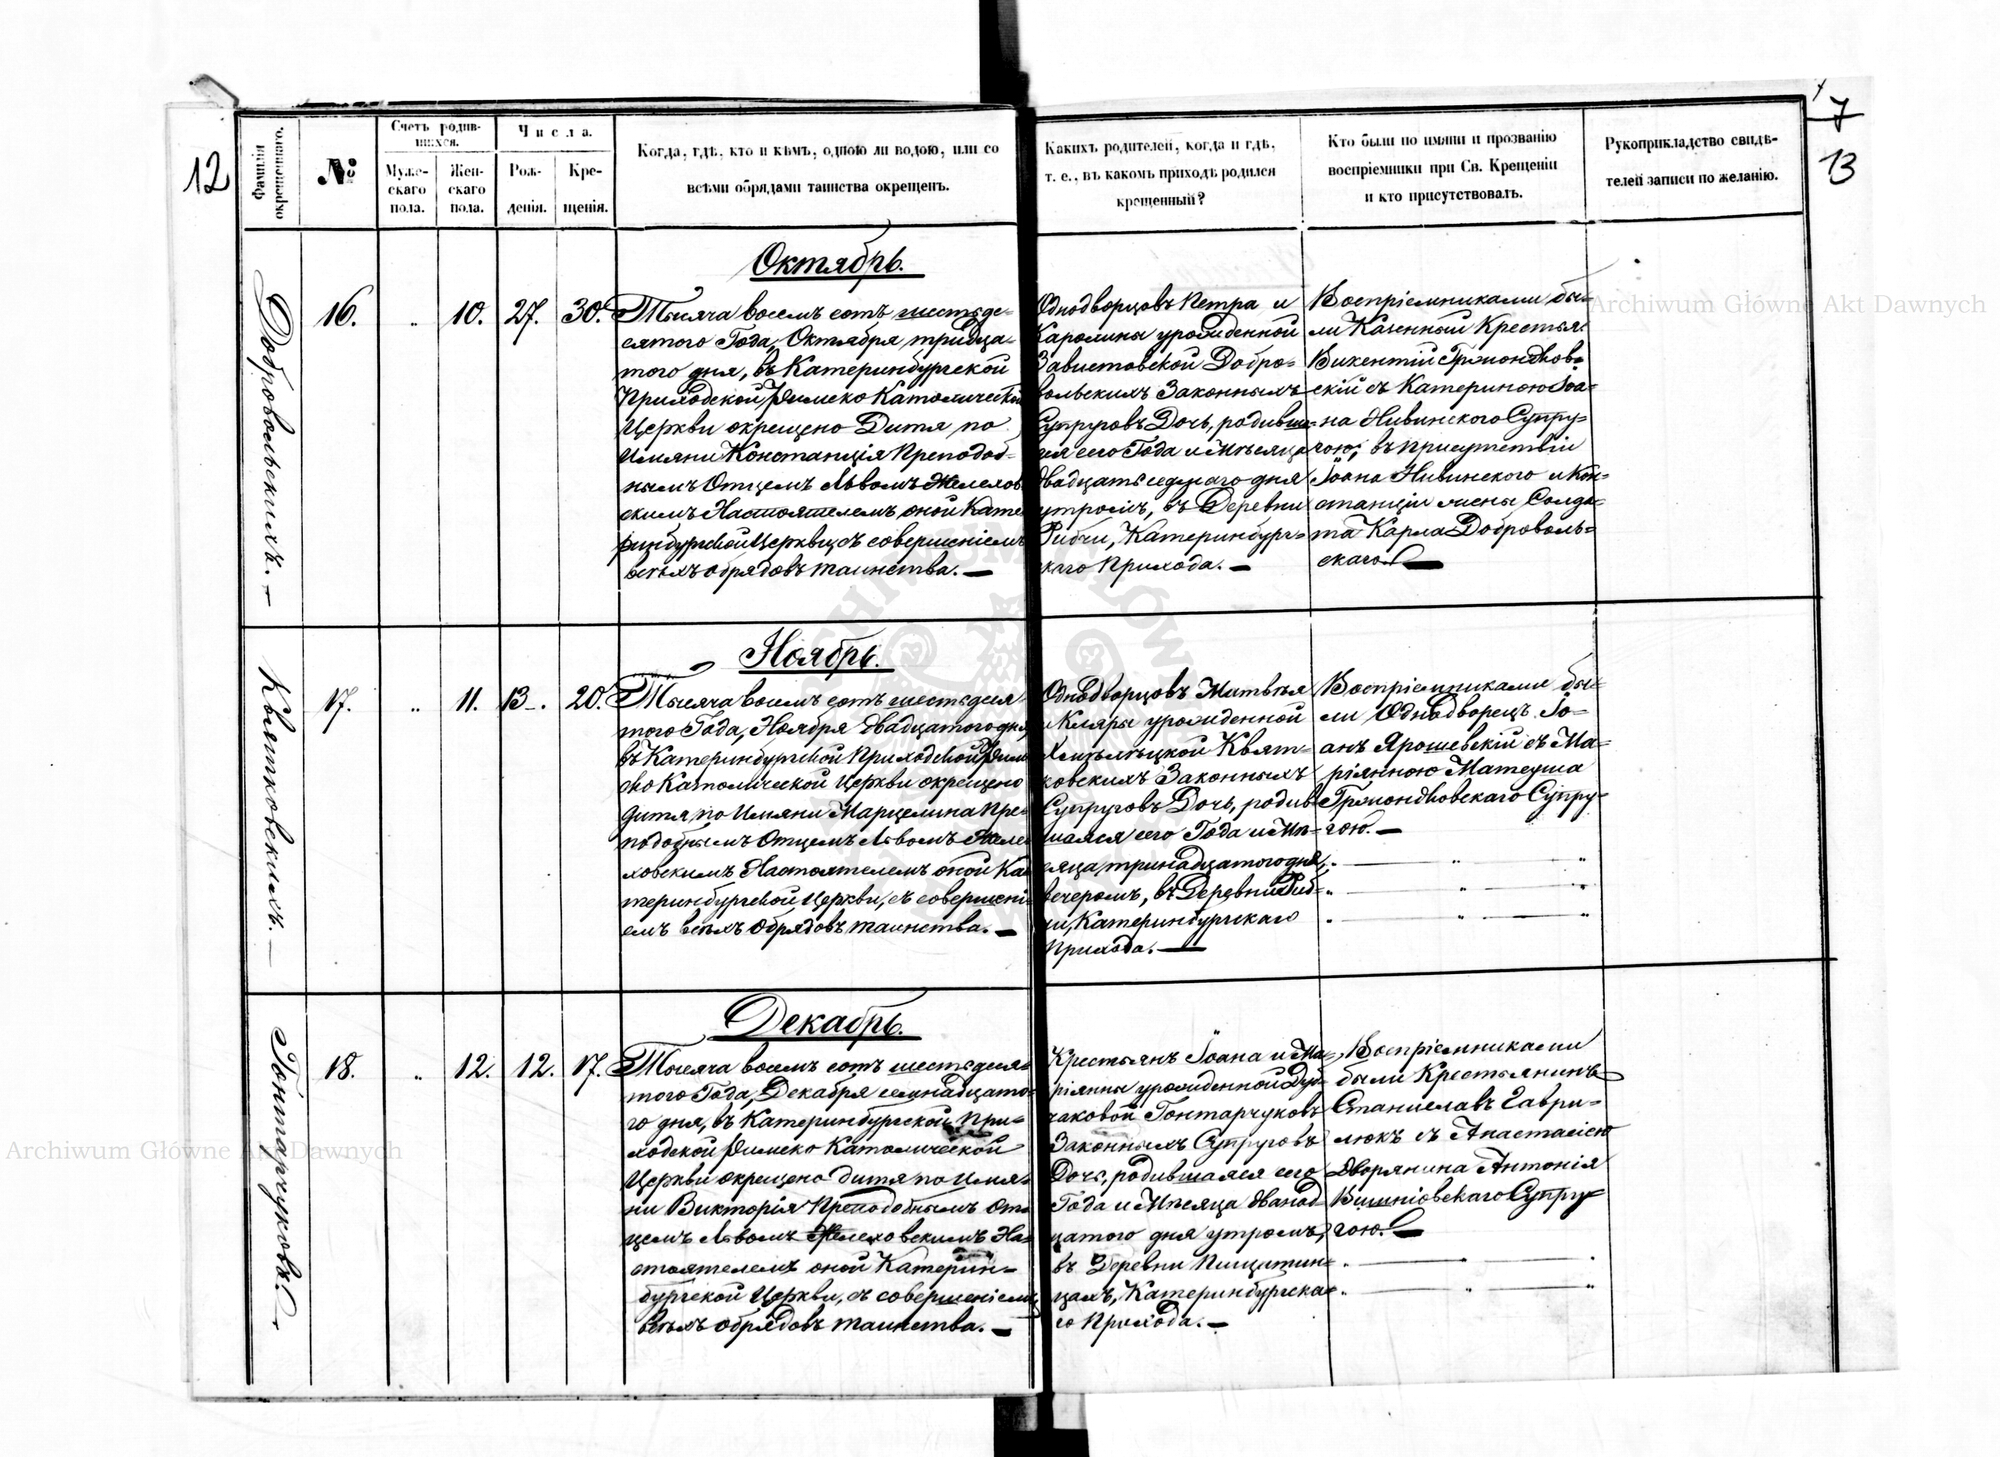 12
7
13
Фамилія окрещеннаго.
№
Счетъ родив-
шихся.
Муже-
скаго
пола.
Жен-
скаго
пола.
Числа.
Рож-
денія.
Кре-
щенія.
Когда, гдѣ, кто и кѣмъ, одною ли водою, или со
всѣми обрядами таинства окрещенъ.
Какихъ родителей, когда и гдѣ,
т. е., въ какомъ приходѣ родился
крещенный?
Кто были по имяни и прозванію
воспріемники при Св. Крещеніи
и кто присутствовалъ.
Рукоприкладство свидѣ-
телей записи по желанію.
Октябрь.
Добровольскихъ.
16.
10.
27.
30.
Тысяча восемъ сотъ шестьде-
сятого Года, Октября тридца-
того дня, въ Катеринбургской
Приходской Римско Католической
Церкви окрещено Дитя по
Имяни Констанція Преподоб-
нымъ Отцемъ Львомъ Желехов
скимъ Настоятелемъ оной Кате
ринбургской Церкви, съ совершеніемъ
всѣхъ обрядовъ таинства. —
Однодворцовъ Петра и
Каролины урожденной
Завистовской Добро-
вольскихъ Законныхъ
Супруговъ Дочь, родивша-
яся сего Года и Мѣсяца
двадцать седмаго дня
утромъ, въ Деревни
Рибчи, Катеринбург-
каго Прихода. —
Воспріемниками бы-
ли Казенный Крестья
Викентій Гржондков-
скій съ Катериною Іоа-
на Нивинского Супру-
гою; въ присутствіи
Іоана Нивинского и Кон-
станціи жены Солда-
та Карла Доброволь-
скаго. —
Ноябрь.
Квятковскихъ. —
17.
11.
13.
20.
Тысяча восемъ сотъ шестьдеся
того Года, Ноября двадцатого дня,
въ Катеринбургской Приходской Рим
ско Католической Церкви окрещено
дитя по Имяни Марцелина Пре-
подобнымъ Отцемъ Львомъ Желе
ховскимъ Настоятелемъ оной Ка
теринбургской Церкви, съ совершені-
емъ всѣхъ обрядовъ таинства. —
Однодворцовъ Матвѣя
и Кляры урожденной
Хмѣлѣцкой Квят-
ковскихъ Законныхъ
Супруговъ Дочь, родив-
шаяся сего Года и Мѣ-
сяца тринадцатого дня,
вечеромъ, въ Деревни Риб-
чи, Катеринбургскаго
Прихода. —
Воспріемниками бы-
ли Однодворецъ Іо-
анъ Ярошевскій съ Ма-
ріянною Матеуша
Гржондковскаго Супру-
гою. —
Декабрь.
Гонтарчуковъ.
18.
12.
12.
17.
Тысяча восемъ сотъ шестьдеся
того Года, Декабря семнадцато-
го дня, въ Катеринбургской При-
ходской Римско Католической
Церкви окрещено дитя по Имя-
ни Викторія Преподобнымъ От-
цемъ Львомъ Желеховскимъ На-
стоятелемъ оной Катерин-
бургской Церкви, съ совершеніемъ
всѣхъ обрядовъ таинства. —
Крестьянъ Іоана и Ма-
ріянны урожденной Дуб-
чаковой Гонтарчуковъ
Законныхъ Супруговъ
Дочь, родившаяся сего
Года и Мѣсяца двенад-
цатого дня утромъ,
въ Деревни
цахъ, Катеринбургска-
го Прихода. —
Воспріемниками
были Крестьянинъ
Станиславъ Гаври-
люкъ съ Анастасіею
Дворянина Антонія
Вишніовскаго Супру-
гою. —
Archiwum Główne Akt Dawnych
Archiwum Główne Akt Dawnych